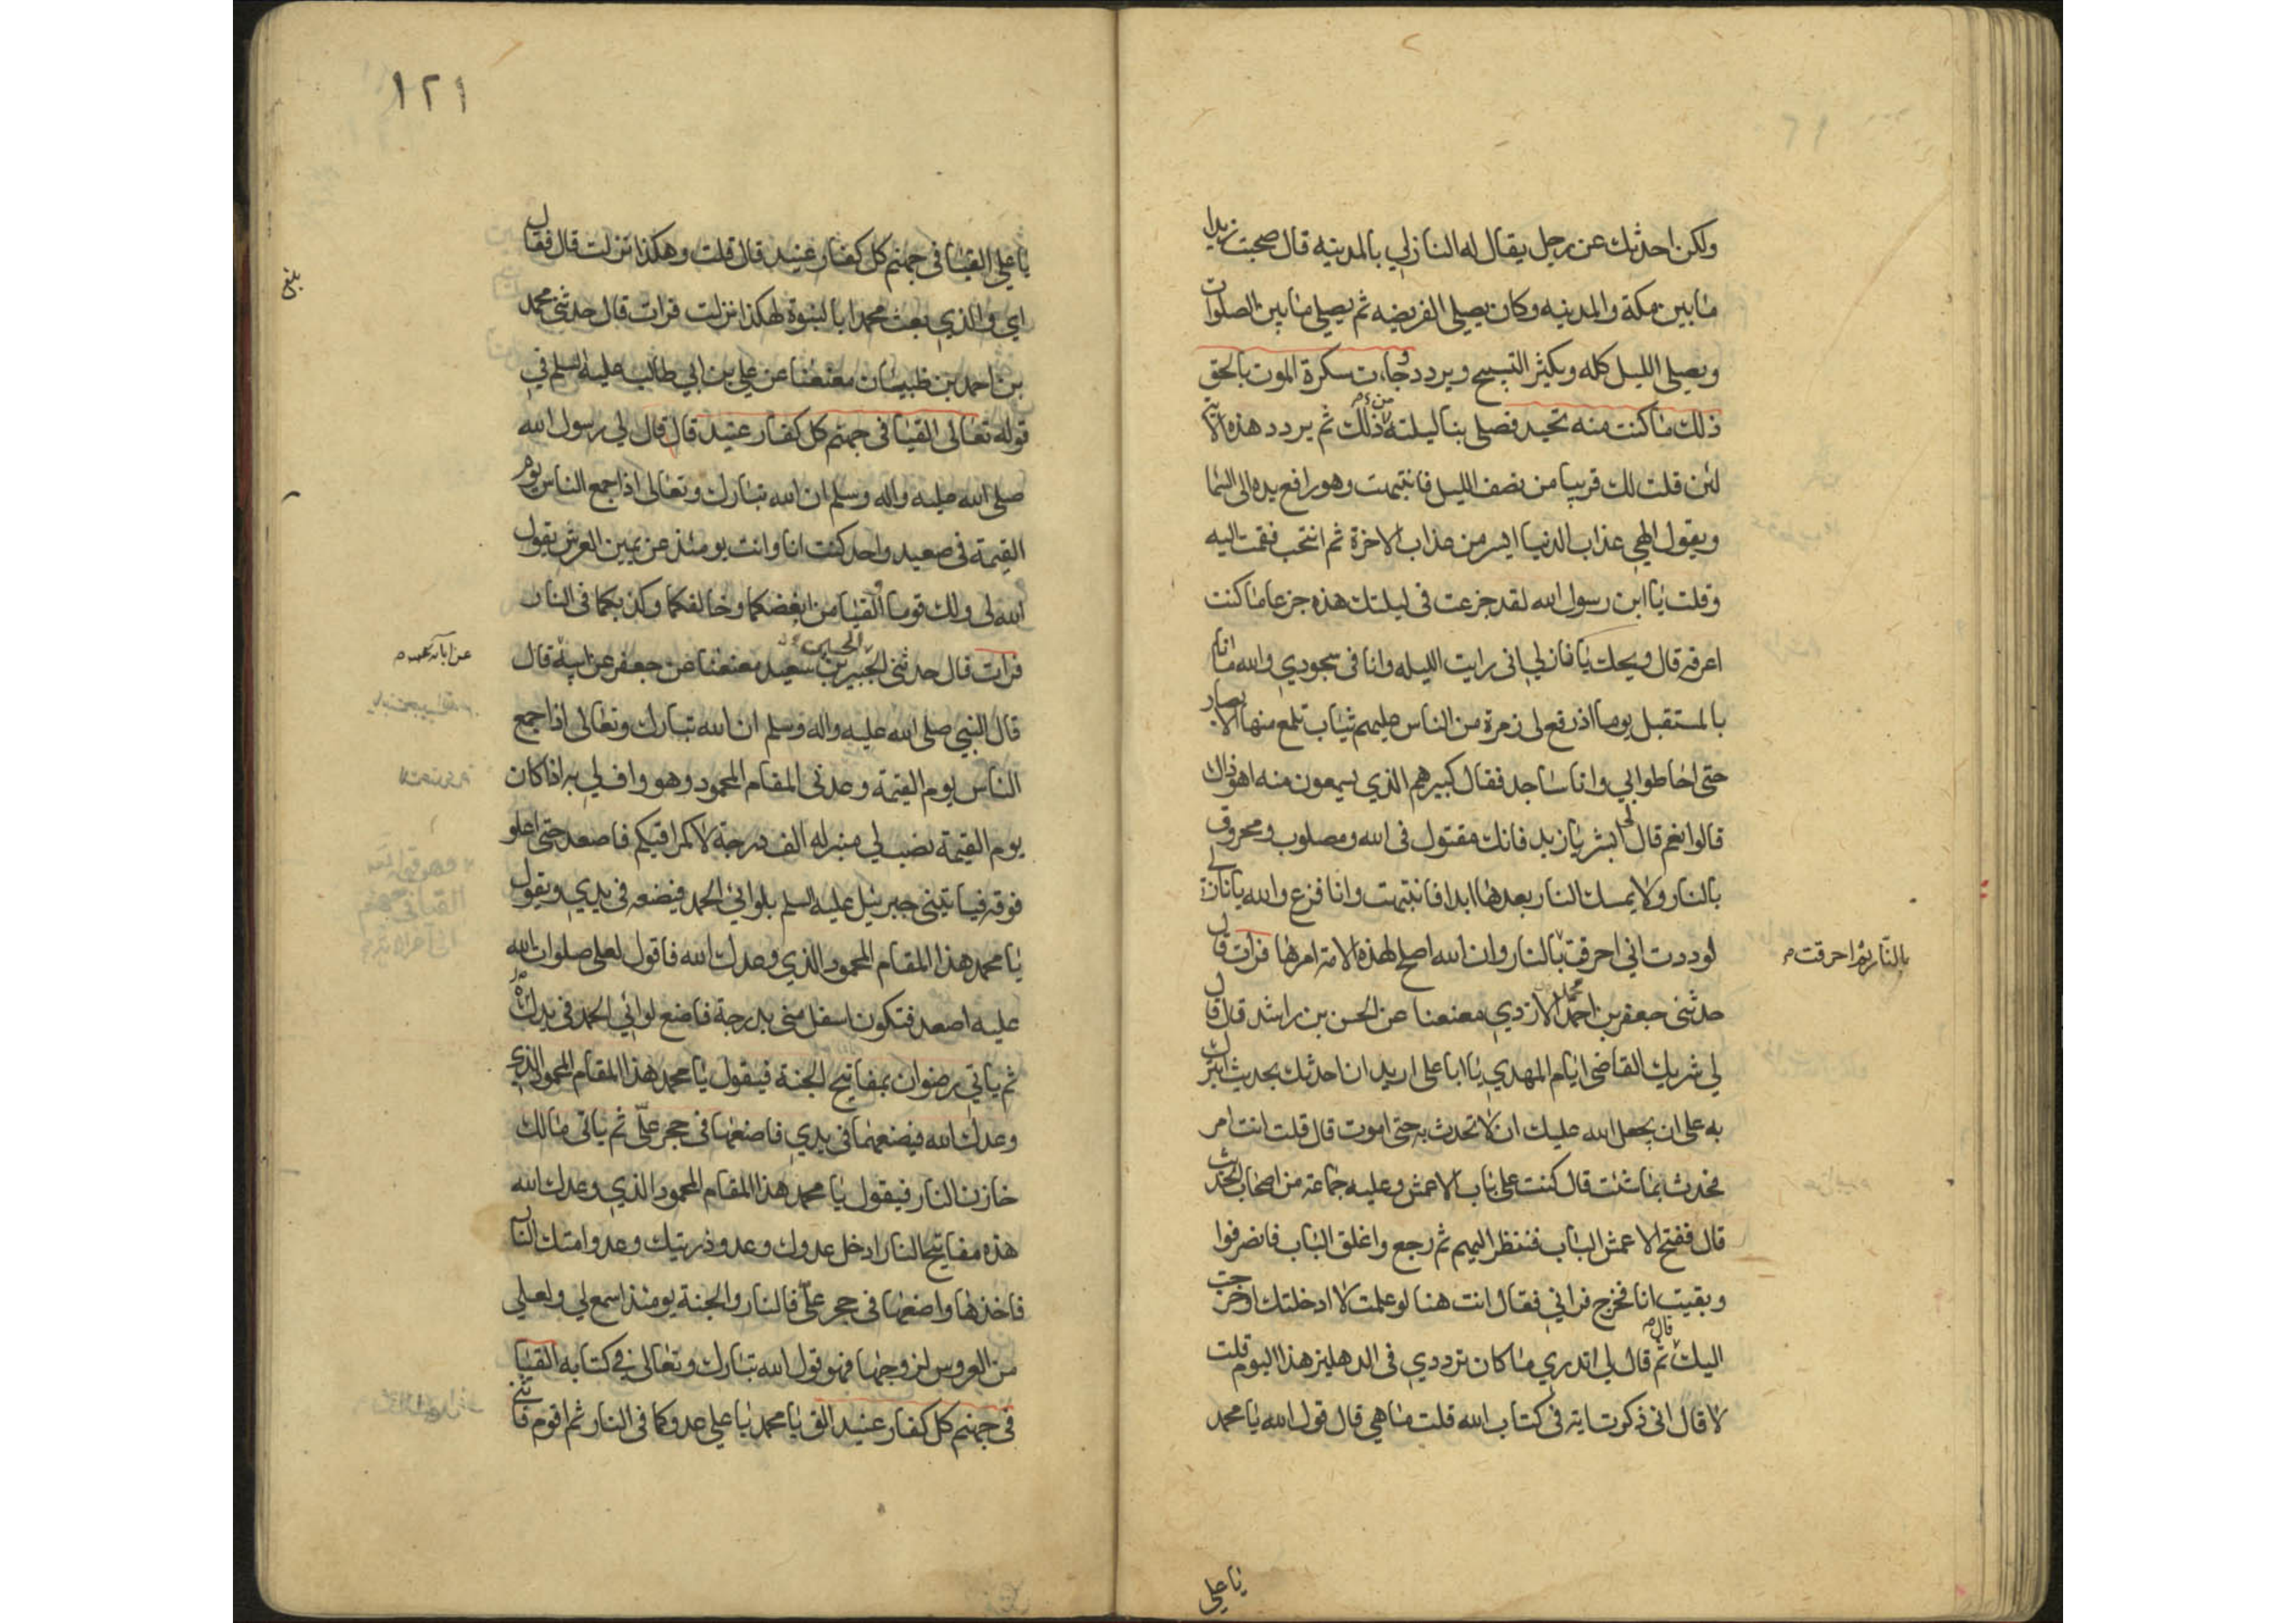 ولكن احدثك عن رجل يقال له النازلي بالمدينه قال صحبت زيدا
ما بين مكة والمدينه وكان يصلي الفريضه ثم يصلي ما بين الصلوات
ويصلي الليل كله ويكثر التسبيح ويردد وجاءت سكرة الموت بالحق
ذلك ما كنت منه تحيد فصلى بنا ليلته من ذلك ثم يردد هذه الاية
لئن قلت لك قريبا من نصف الليل فانتبهت وهو رافع يده الى السما
ويقول الهي عذاب الدنيا ايسر من عذاب الاخرة ثم انتحب فقمت اليه
وقلت يا ابن رسول الله لقد جزعت في ليلتك هذه جزعا ما كنت
اعرفه قال ويحك يا نازلي اني رايت الليله وانا في سجودي والله ما انا
بالمستقبل يوما اذ رفع لي زمرة من الناس عليهم ثياب تلمع منها الابصار
حتى احاطوا بي وانا ساجد فقال كبيرهم الذي يسمعون منه اهو ذاك
قالوا نعم قال ابشر يا زيد فانك مقتول في الله ومصلوب ومحروق
بالنار ولا يمسك النار بعدها ابدا فانتبهت وانا فزع والله يا نازلي
لوددت اني احرقت بالنار وان الله اصلح لهذه الامة امرها فرات قال
بالنار ثم احرقت
حدثني جعفر بن احمد الازدي معنعنا عن الحسن بن راشد قال قال
محمد
لي شريك القاضي ايام المهدي يا ابا علي اريد ان احدثك بحديث اتبرك
به على ان يجعل الله عليك ان لا تحدث به حتى اموت قال قلت انت امر
فحدث بما شئت قال كنت على باب الاعمش وعليه جماعة من اصحاب الحديث
قال ففتح الاعمش الباب فنظر اليهم ثم رجع واغلق الباب فانصرفوا
وبقيت انا فخرج فراني فقال انت هنا لو علمت لا ادخلتك او خرجت
اليك قال ثم قال لي اتدري ما كان ترددي في الدهليز هذا اليوم قلت
لا قال اني ذكرت اية في كتاب الله قلت ما هي قال قول الله يا محمد
يا علي
١٢١
يا علي القيا في جهنم كل كفار عنيد قال قلت وهكذا نزلت قال فقال
اي والذي بعث محمدا بالنبوة لهكذا نزلت فرات قال حدثني محمد
بلغ
بن احمد بن ظبيان معنعنا عن علي بن ابي طالب عليه السلم في
قوله تعالى القيا في جهنم كل كفار عنيد قال قال لي رسول الله
صلى الله عليه واله وسلم ان الله تبارك وتعالى اذا جمع الناس يوم
القيمة في صعيد واحد كنت انا وانت يومئذ عن يمين العرش يقول
الله لي ولك قوما القيا من ابغضكما وخالفكما وكذبكما في النار
فرات قال حدثني الحسين بن سعيد معنعنا عن جعفر عن ابيه قال
عن ابائه
قال النبي صلى الله عليه واله وسلم ان الله تبارك وتعالى اذا جمع
الناس يوم القيمة وعدني المقام المحمود وهو واف لي به اذا كان
يوم القيمة نصب لي منبر له الف درجة لا كمراقيكم فاصعد حتى اعلو
فوقه فياتيني جبرئيل عليه السلم بلوائي الحمد فيضعه في يدي ويقول
يا محمد هذا المقام المحمود الذي وعدك الله فاقول لعلي صلوات الله
عليه اصعد فتكون اسفل مني بدرجة فاضع لوائي الحمد في يدك
ثم ياتي رضوان بمفاتيح الجنة فيقول يا محمد هذا المقام المحمود الذي
وعدك الله فيضعها في يدي فاضعها في حجر علي ثم ياتي مالك
خازن النار فيقول يا محمد هذا المقام المحمود الذي وعدك الله
هذه مفاتيح النار ادخل عدوك وعدو ذريتك وعدو امتك النار
فاخذها واضعها في حجر علي فالنار والجنة يومئذ اسمع لي ولعلي
من العروس لزوجها فهو قول الله تبارك وتعالى في كتابه القيا
في جهنم كل كفار عنيد الق يا محمد يا علي عدوكما في النار ثم اقوم فاثني